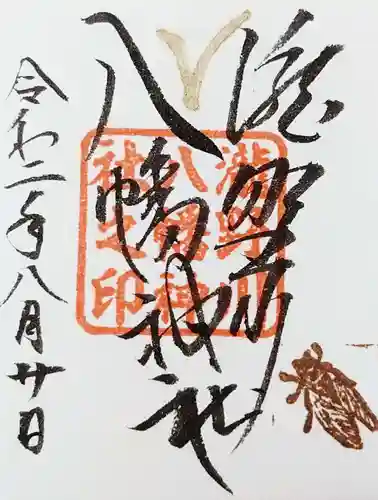 瀧野川
八幡神社
令和二年八月廿日
瀧野川
八幡神
社之印